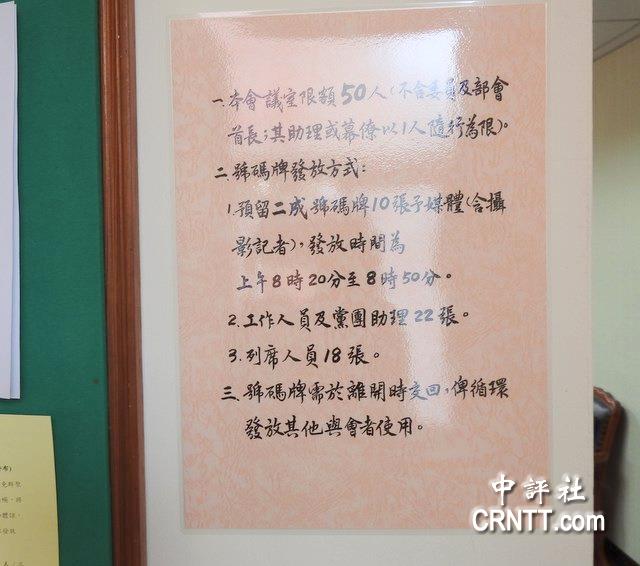 一.本會議室限額50人(不含委員及部會
首長;其助理或幕僚以1人隨行為限)。
二.號碼牌發放方式:
1.預留二成號碼牌10張予媒體(含攝
影記者),發放時間為
上午8時20分至8時50分。
2.工作人員及黨團助理22張。
3.列席人員18張。
三.號碼牌需於離開時交回,俾循環
發放其他與會者使用。
中評社
CRNTT.com